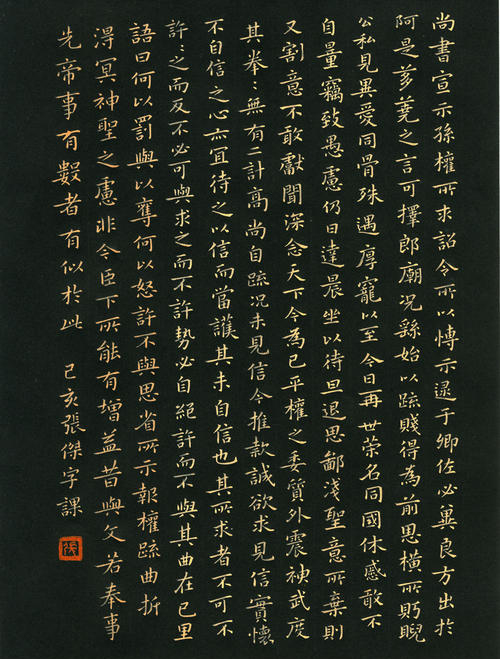 尚書宣示孫權所求詔令所以博示逮于卿佐必冀良方出於
阿是芻蕘之言可擇郎廟况繇始以疏賤得為前恩橫所眄睨
公私見異愛同骨殊遇厚寵以至今日再世榮名同國休慼敢不
自量竊致愚慮仍日達晨坐以待旦退思鄙淺聖意所棄則
又割意不敢獻聞深念天下今為已平權之委質外震神武度
其拳:無有二計高尚自疏况未見信今推款誠欲求見信實懷
不自信之心亦宜待之以信而當護其未自信也其所求者不可不
許:之而反不必可與求之而不許勢必自絕許而不與其曲在已里
語曰何以罰與以奪何以怒許不與思省所示報權疏曲折
得冥神聖之慮非今臣下所能有增益昔與文若奉事
先帝事有數者有似於此 己亥張傑字課
張